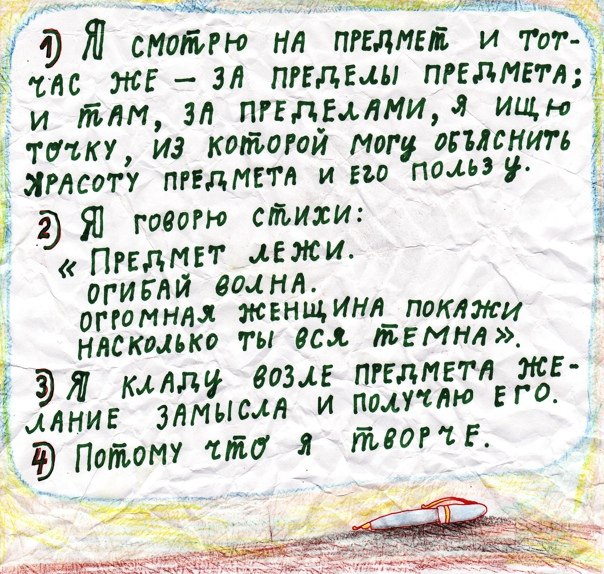 1) Я смотрю на предмет и тот-
час же – за пределы предмета;
и там, за пределами, я ищю
точку, из которой могу объяснить
красоту предмета и его пользу.
2) Я говорю стихи:
« Предмет лежи.
Огибай волна.
Огромная женщина покажи
насколько ты вся темна».
3) Я кладу возле предмета же-
лание замысла и получаю его.
4) Потому что я творче.